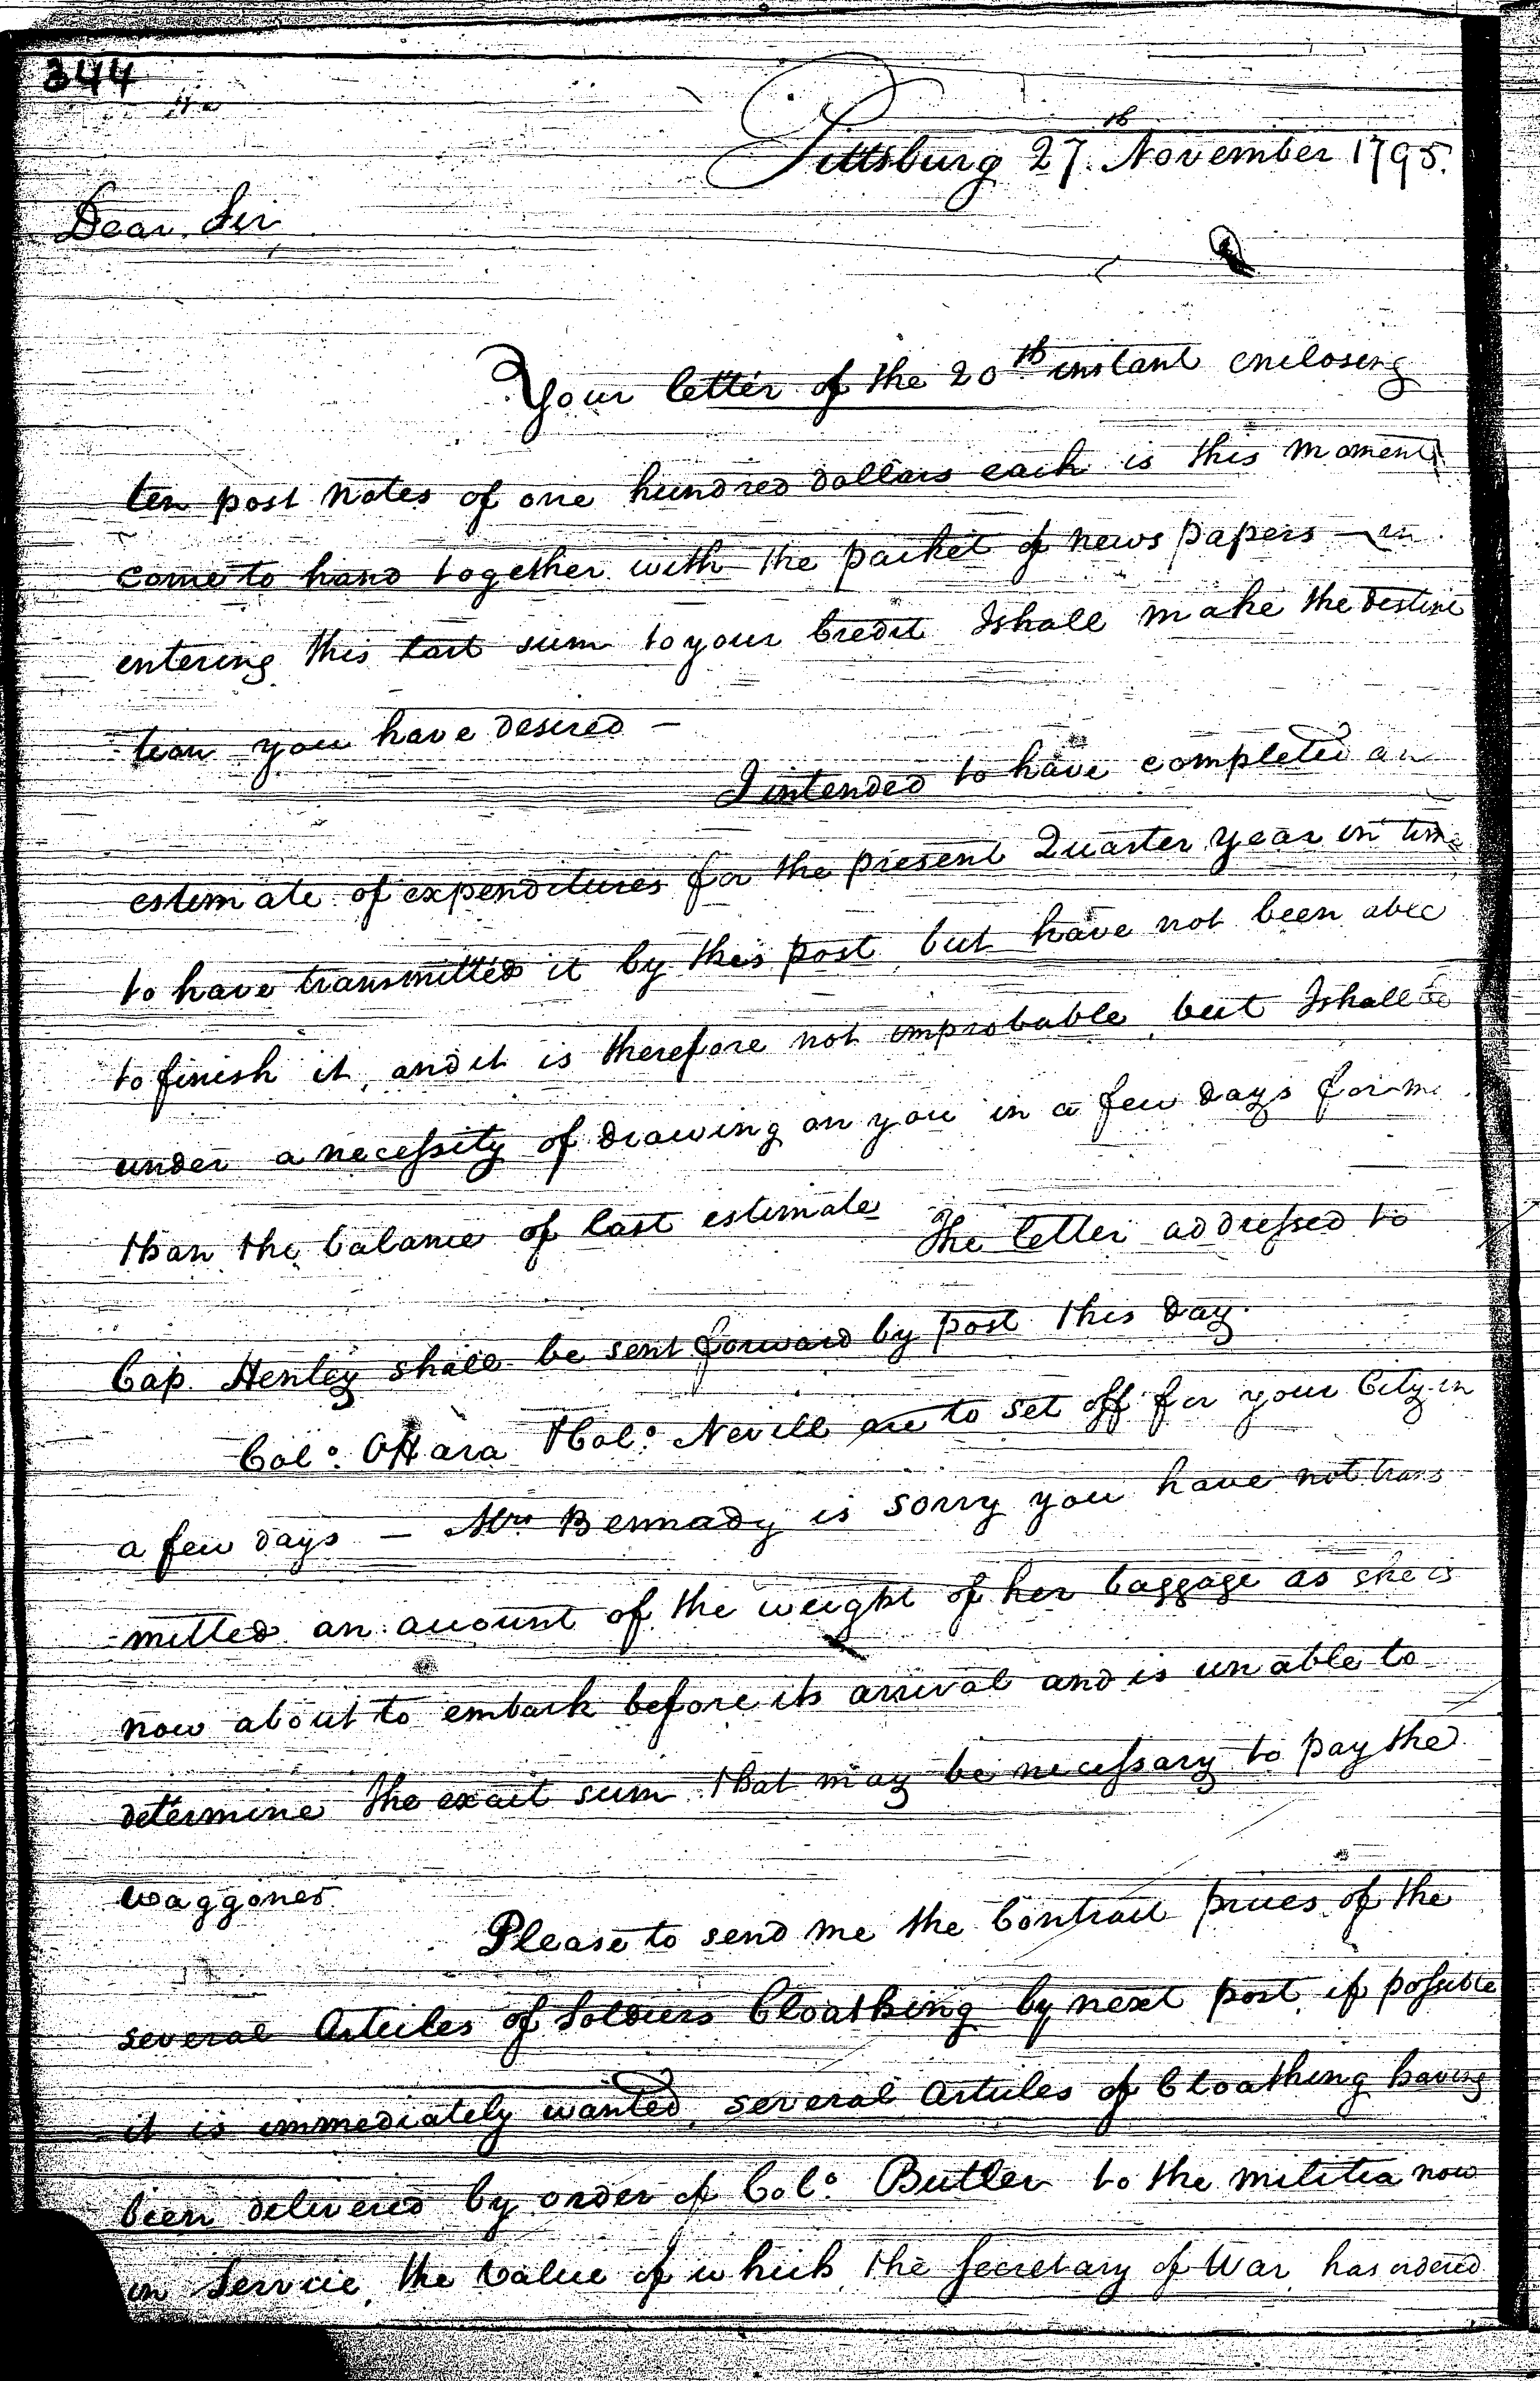 344
Pittsburg 27.th November 1795.
Dear Sir
Your letter of the 20th instant enclosing
ten post notes of one hundred dollars each is this moment
come to hand together with the packet of news papers — in
entering this last sum to your Credit I shall make the destina
-tion you have desired —
I intended to have completed an
estimate of expenditures for the present Quarter year in time
to have transmitted it by this post, but have not been able
to finish it, and it is therefore not improbable, but I shall be
under a necessity of drawing on you in a few days for
than the balance of last estimate The letter addressed to
Cap. Henley shall be sent forward by post this day.
Colo. OHara & Colo. Nevill are to set off for your City in
a few days — Mrs Bennady is sorry you have not trans
-mitted an account of the weight of her baggage as she is
now about to embark before its arrival and is unable to
determine the exact sum that may be necessary to pay the
waggoner.
Please to send me the Contract prices of the
several Articles of Soldiers Cloathing by next post, if possible
it is immediately wanted, several Articles of Cloathing having
been delivered by order of Colo. Butler to the militia now
in Service, the Value of which, the Secretary of War, has ordered